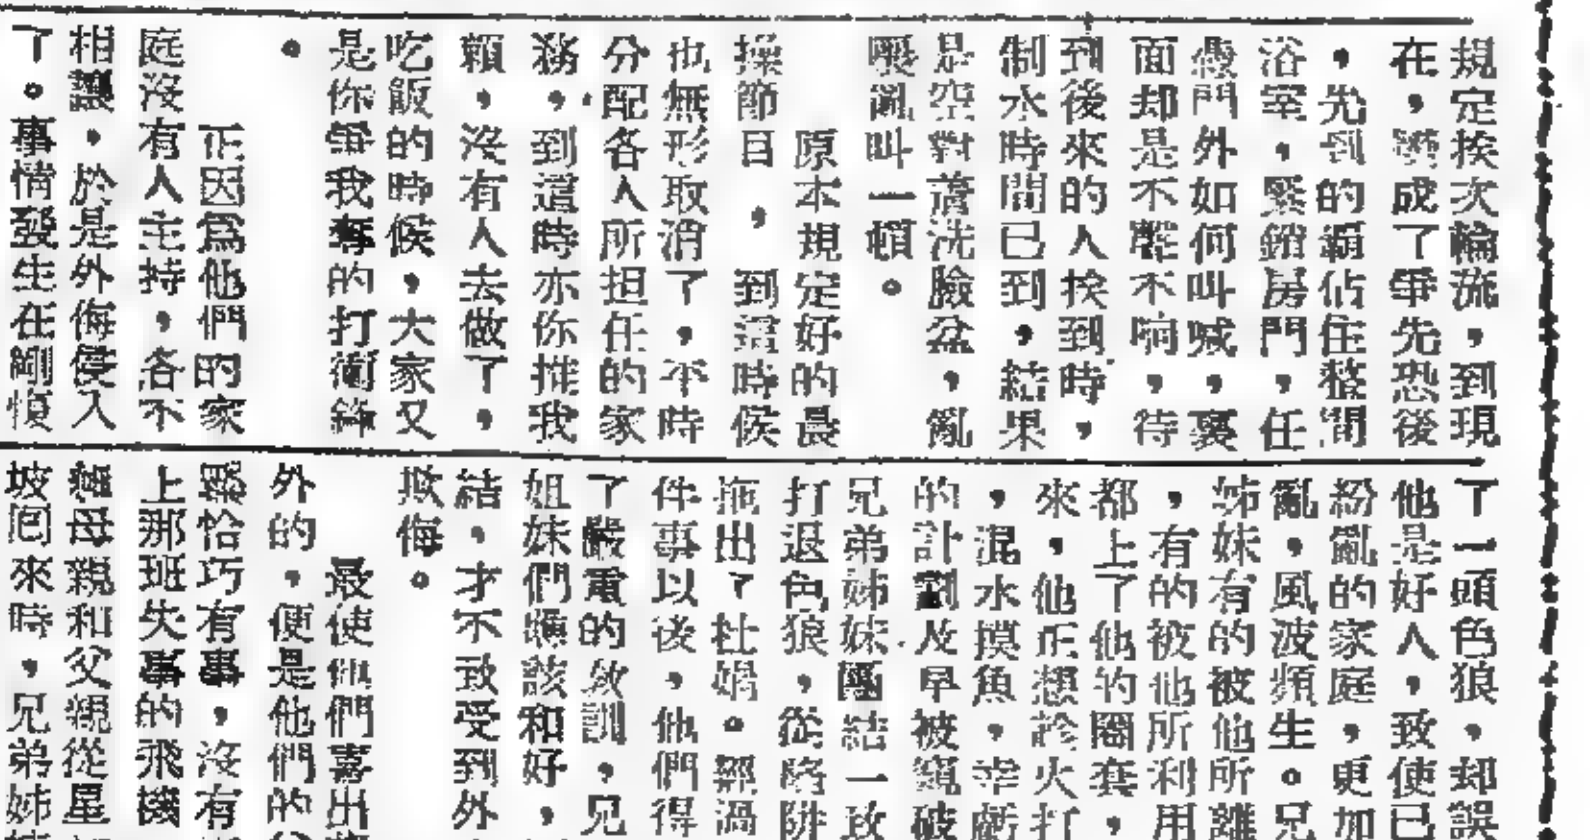 規定挨次輪流，到現
在，變成了爭先恐後
，先到的霸佔住整間
浴室，緊鎖房門，任
憑門外如何叫喊，裏
面却是不聲不响，待
到後來的人挨到時，
制水時間已到，結果
是空對著洗臉盆，亂
嚷亂叫一頓。
原本規定好的晨
操節目，到這時候
也無形取消了，平時
分配各人所担任的家
務，到這時亦你推我
賴，沒有人去做了，
吃飯的時候，大家又
是你爭我奪的打衝鋒
。
正因為他們的家
庭沒有人主持，各不
相讓，於是外侮侵入
了。事情發生在剛愎
了一頭色狼，却誤
他是好人，致使已
紛亂的家庭，更加
亂，風波頻生。兄
姊妹有的被他所離
，有的被他所利用
都上了他的圈套，
來，他正想趁火打
，混水摸魚，幸虧
的計劃及早被窺破
兄弟姊妹團結一致
打退色狼，從陷阱
拖出了杜娟。經過
件事以後，他們得
了嚴重的教訓，兄
姐妹們應該和好，
結，才不致受到外
欺侮。
最使他們喜出
外的，便是他們的
恰巧有事，沒有
上那班失事的飛機
母親和父親從星
坡回來時，兄弟姊